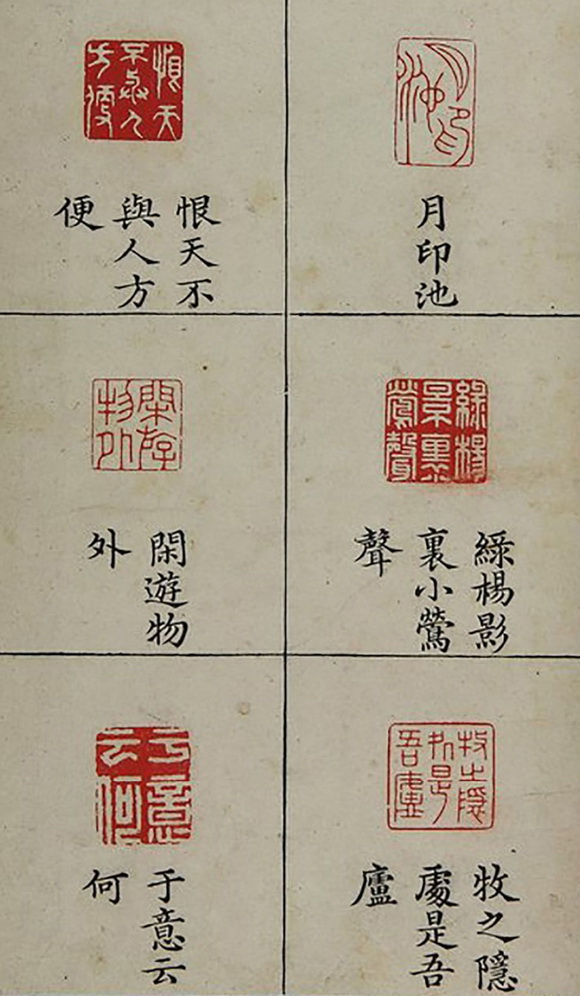 月印池
恨天不
與人方
便
綠楊影
裏小鶯
聲
閑遊物
外
牧之隱
處是吾
廬
于意云
何